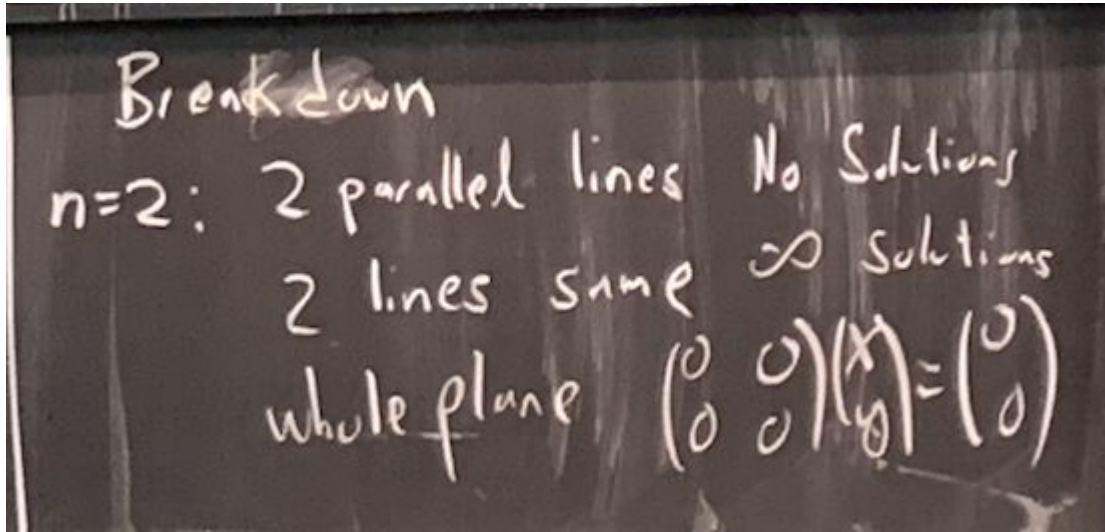 Breakdown
n=2: 2 parallel lines No Solutions
2 lines same ∞ Solutions
whole plane (0 0; 0 0)(x; y) = (0; 0)